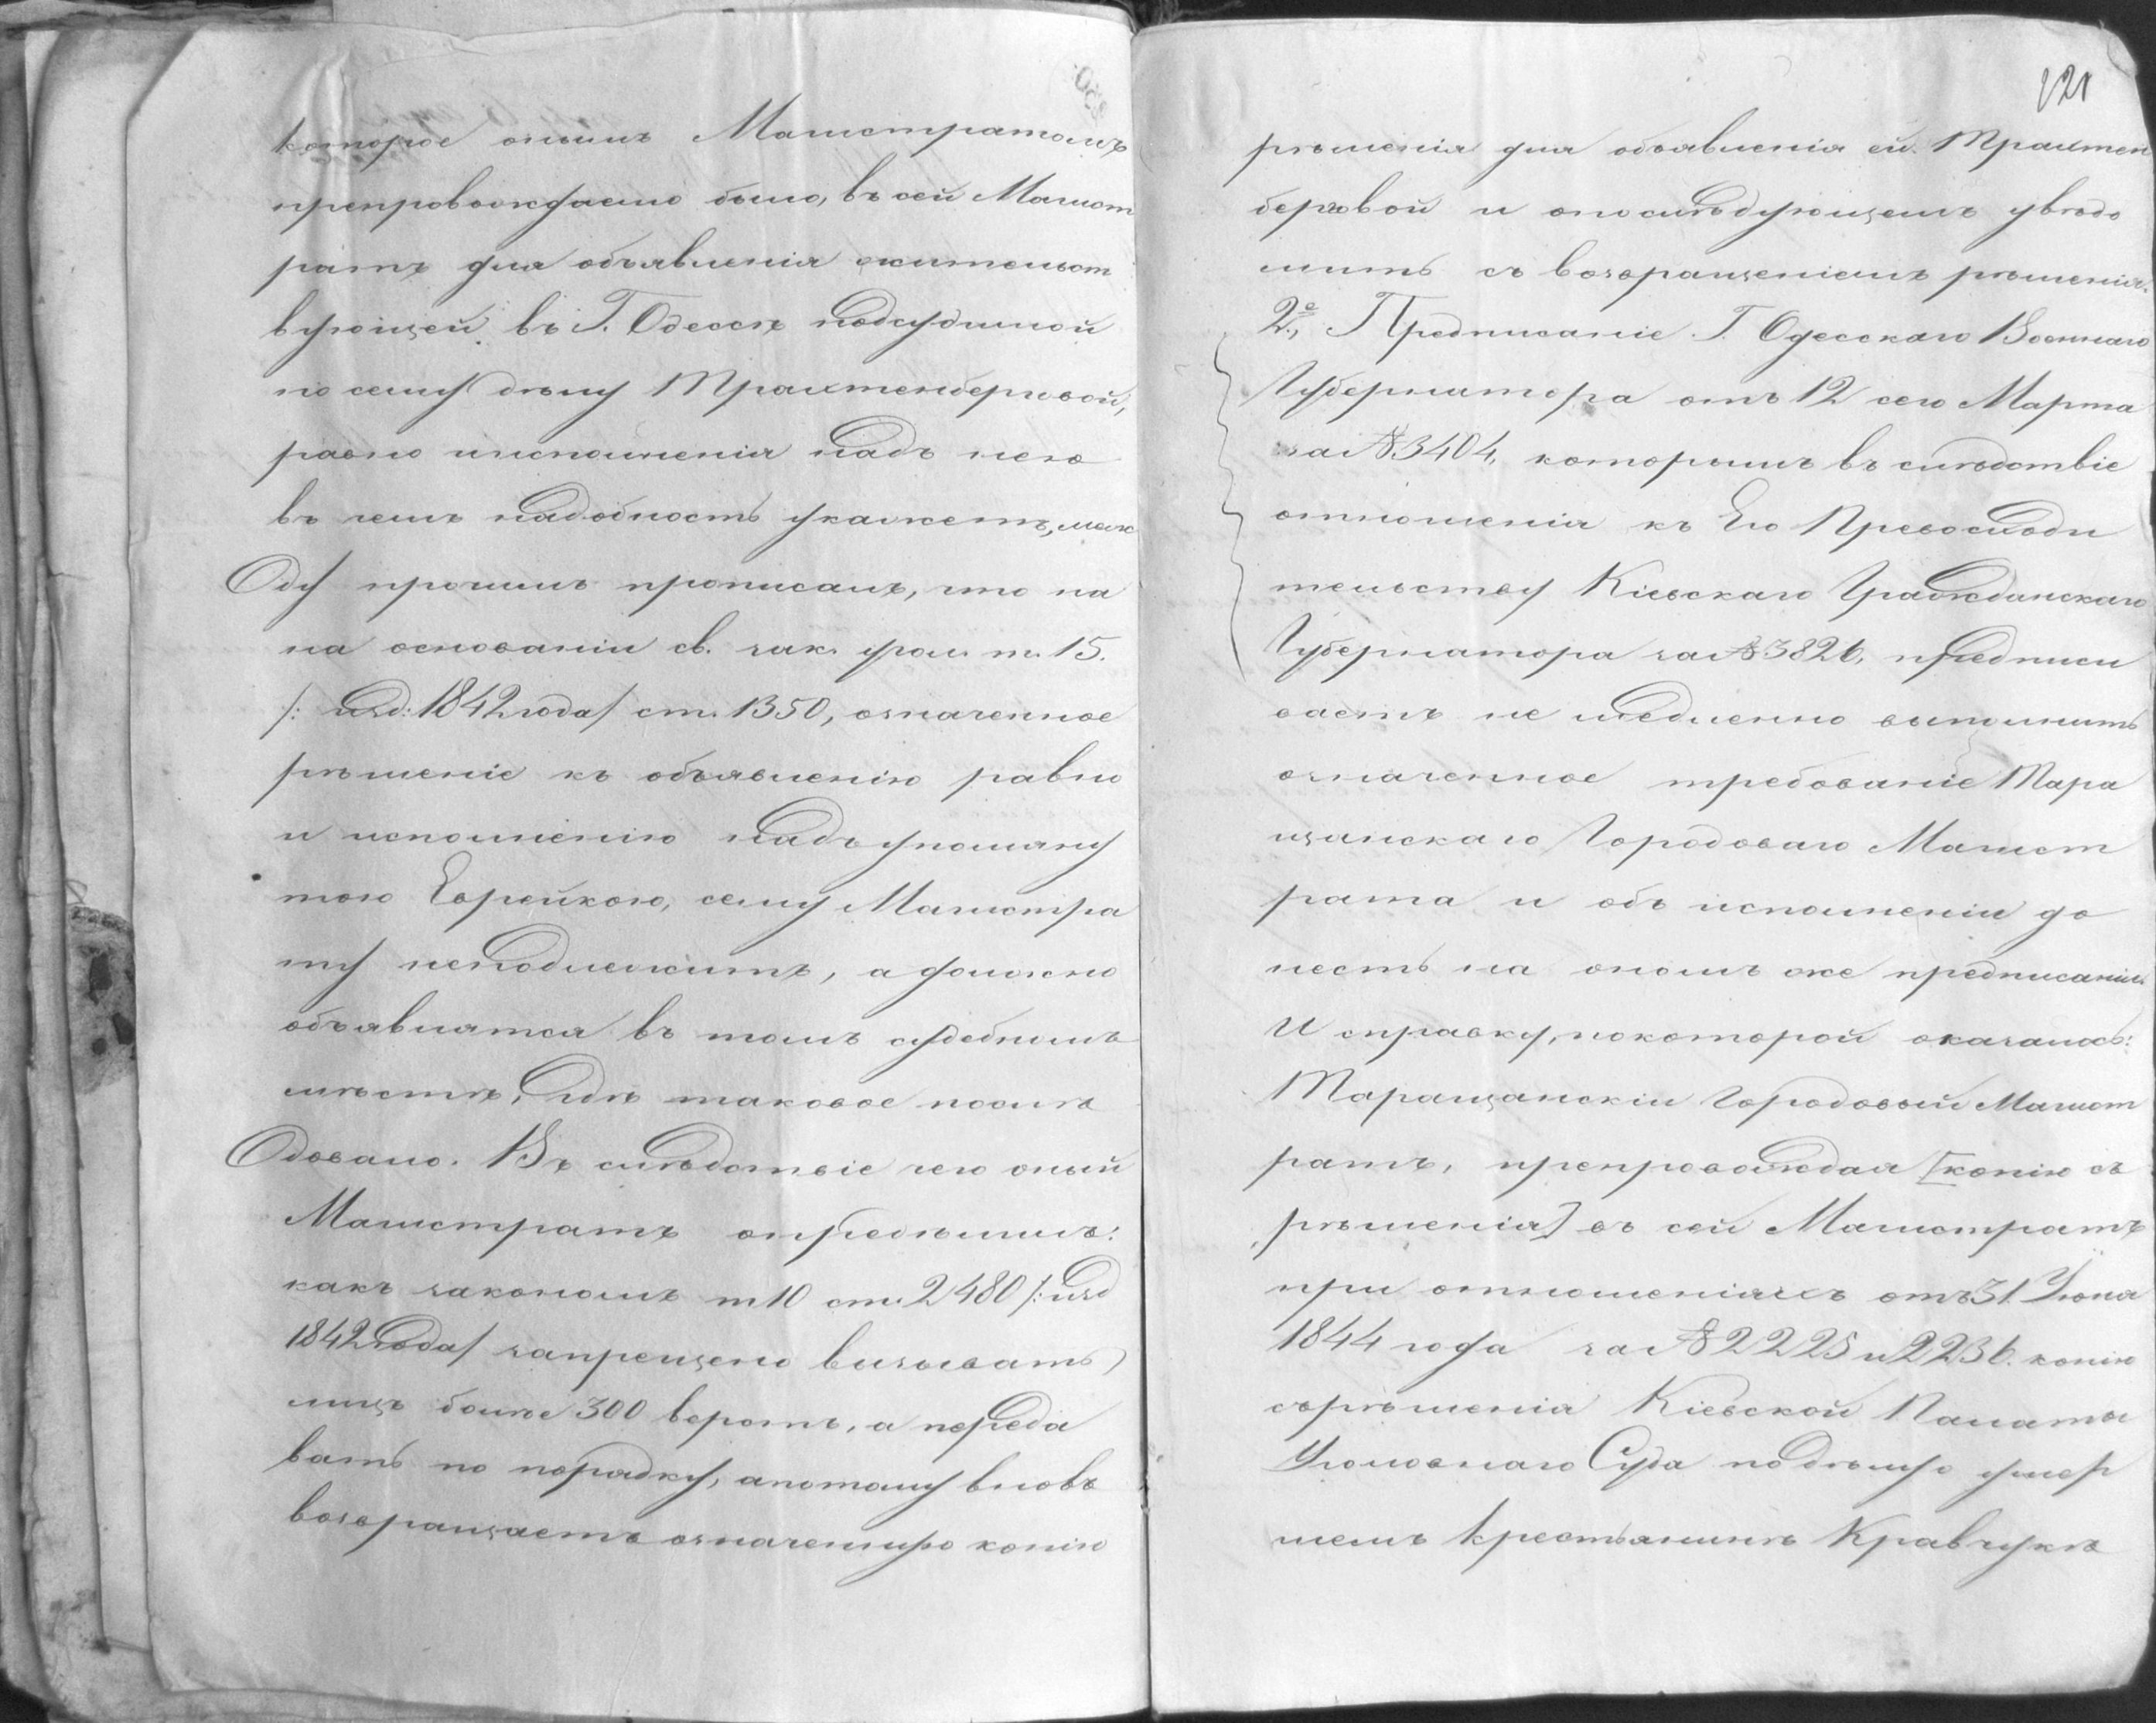 которое онымъ Магистратомъ
препровождаемо было, въ сей Магист
ратъ для объявленія жительст
вующей въ Г. Одессѣ подсудимой
по сему дѣлу Трахтенберговой,
равно исполненія надъ нею
въ чемъ надобность укажетъ, меж
ду прочимъ прописалъ, что на
на основаніи св. зак. угол. т. 15.
/: изд: 1842 года/ ст. 1350, означенное
рѣшеніе къ объявленію равно
и исполненію надъ упомяну
тою Еврейкою, сему Магистра
ту неподлежитъ, а должно
объявлятся въ томъ судебномъ
мѣстѣ, гдѣ таковое послѣ
довало. Въ слѣдствіе чего оный
Магистратъ опредѣлилъ:
какъ закономъ т 10 ст. 2480 /: изд
1842 года/ запрещено визывать
лицъ болѣе 300 верстъ, а переда
вать по порядку, апотому вновь
возвращаетъ означенную копію
121
рѣшенія для объявленія ей Трахтен
берговой и опослѣдующемъ увѣдо
мить съ возвращеніемъ рѣшенія.
2е, Предписаніе Г. Одесскаго Военнаго
Губернатора отъ 12 сего Марта
за №3404, которымъ въ слѣдствіе
отношенія къ Его Превосходи
тельству Кіевскаго Гражданскаго
Губернатора за №3826, предписы
ваетъ не медленно выполнить
означенное требованіе Тара
щанскаго Городоваго Магист
рата и объ исполненіи до
несть на ономъ же предписаніи.
И справку, покоторой оказалось:
Таращанскій Городовый Магист
ратъ, препровождая [копію съ
рѣшенія] въ сей Магистратъ
при отношеніяхъ отъ 31 Іюля
1844 года за №2225 и 2236. копію
сърѣшенія Кіевской Палаты
Уголовнаго Суда подѣлу о умер
шемъ крестьянинѣ Кравчукѣ